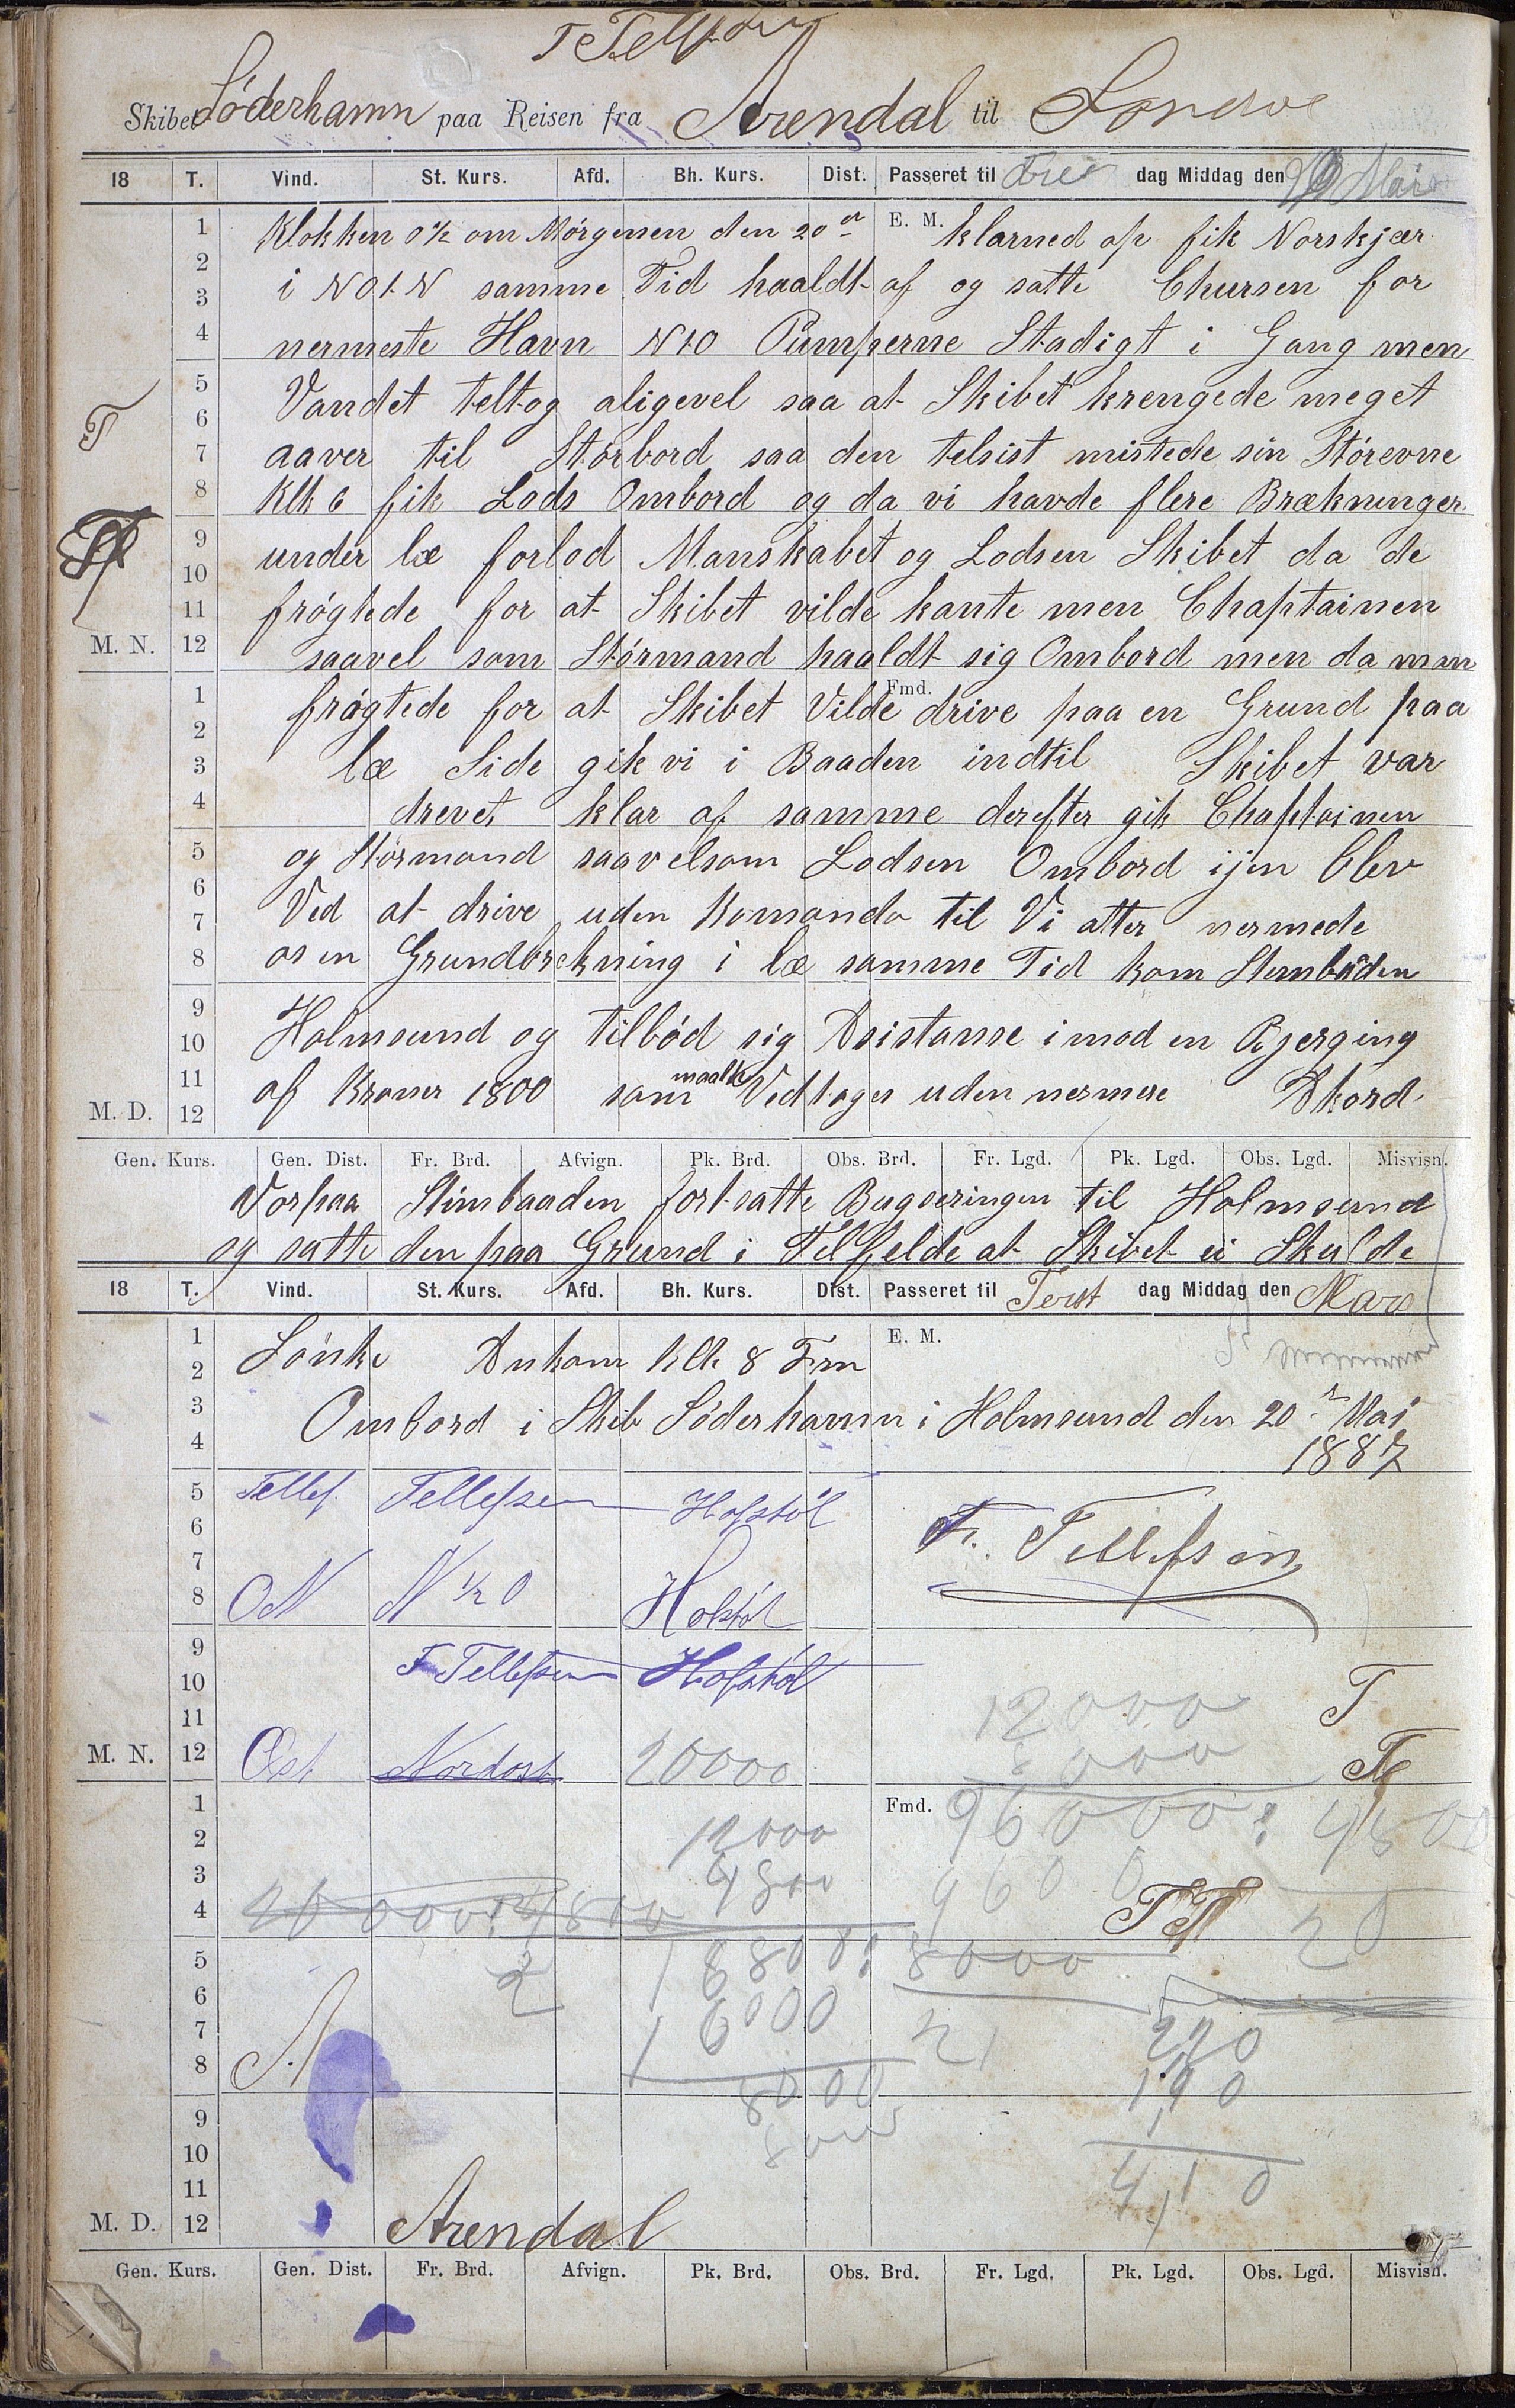 T Tellefsen
Skibet Söderhamn paa Reisen fra Arendal til
18 T. Vind. St. Kurs. Afd. Bh. Kurs. Dist. Passereret til Fre dag Middag den Mai
1 Klokken 0 ½ om Mórgenen den 20de E. M. klarned op fik Norskjær
2 3 i NO t. N samme Tid haaldt af og satte Chursen for
4 nermeste Havn NtO Pumperne Stadigt i Gang men
5 6 Vandet teltog aligevel saa at Skibet krengede meget
7 aaver til Stórbord saa den telsist mistede sin Stórevne
8 Klk 6 fik Lods Ombord og da vi havde flere Brækninger
9 10 under læ forlod Manskabet og Lodsen Skibet da de
11 frógtede for at Skibet vilde kante men Chaptainen
M. N. 12 saavel som Stórmand haaldt sig Ombord men da man
1 2 frógtede for at Skibet Vilde Fmd. drive paa en Grund paa
3 læ Side gik vi i Baaden indtil Skibet var
4 drevet klar af samme derefter gik Chaptainen
5 og Stórmand saavelsom Lodsen Ombord ijen blev
6 7 Ved at drive uden Komando til Vi atter nermede
8 os en Grundbrekning i læ samme Tid kom Stembåden
9 10 Holmsund og tilbód sig Asistanse imod en Bjerging
11 af Kroner 1800 som maatte Vedtages uden nermere Akord
M. D. 12
Gen. Kurs. Gen. Dist. Fr. Brd. Afvign. Pk. Brd. Obs. Brd. Fr. Lgd. Pk. Lgd. Obs. Lgd. Misvisn.
Vorpaa Stimbaaden fortsatte Bugseringen til Holmsund
og satte den paa Grund i Telfelde at Skibet ei Skulde
18 T. Vind. St. Kurs. Afd. Bh. Kurs. Dist. Passeret til Terst dag Middag den Mars
1 2 Sónke Ankom Klk 8 Fm E. M.
3 4 Ombord i Skib Söderhamn i Holmsund den 20 Mai
1887
5 6 Tellef Tellefsen Hofstól
T. Tellefsen
7 8 ON N ½ O Hofstól
9 10 T Tellefsen Hofstól
12000 T
11
M. N. 12 Ost Nordost 20000 8000 T
1 Fmd. 96000 : 4800
2 12000
3 4800 9600
4 4800 TT 20
5 16800 : 8000
2
6 7 16000 21 220
8 N 190
9 8000
10 410
11
M. D. 12 Arendal
Gen. Kurs. Gen. Dist. Fr. Brd. Afvign. Pk. Brd. Obs. Brd. Fr. Lgd. Pk. Lgd. Obs. Lgd. Misvisn.